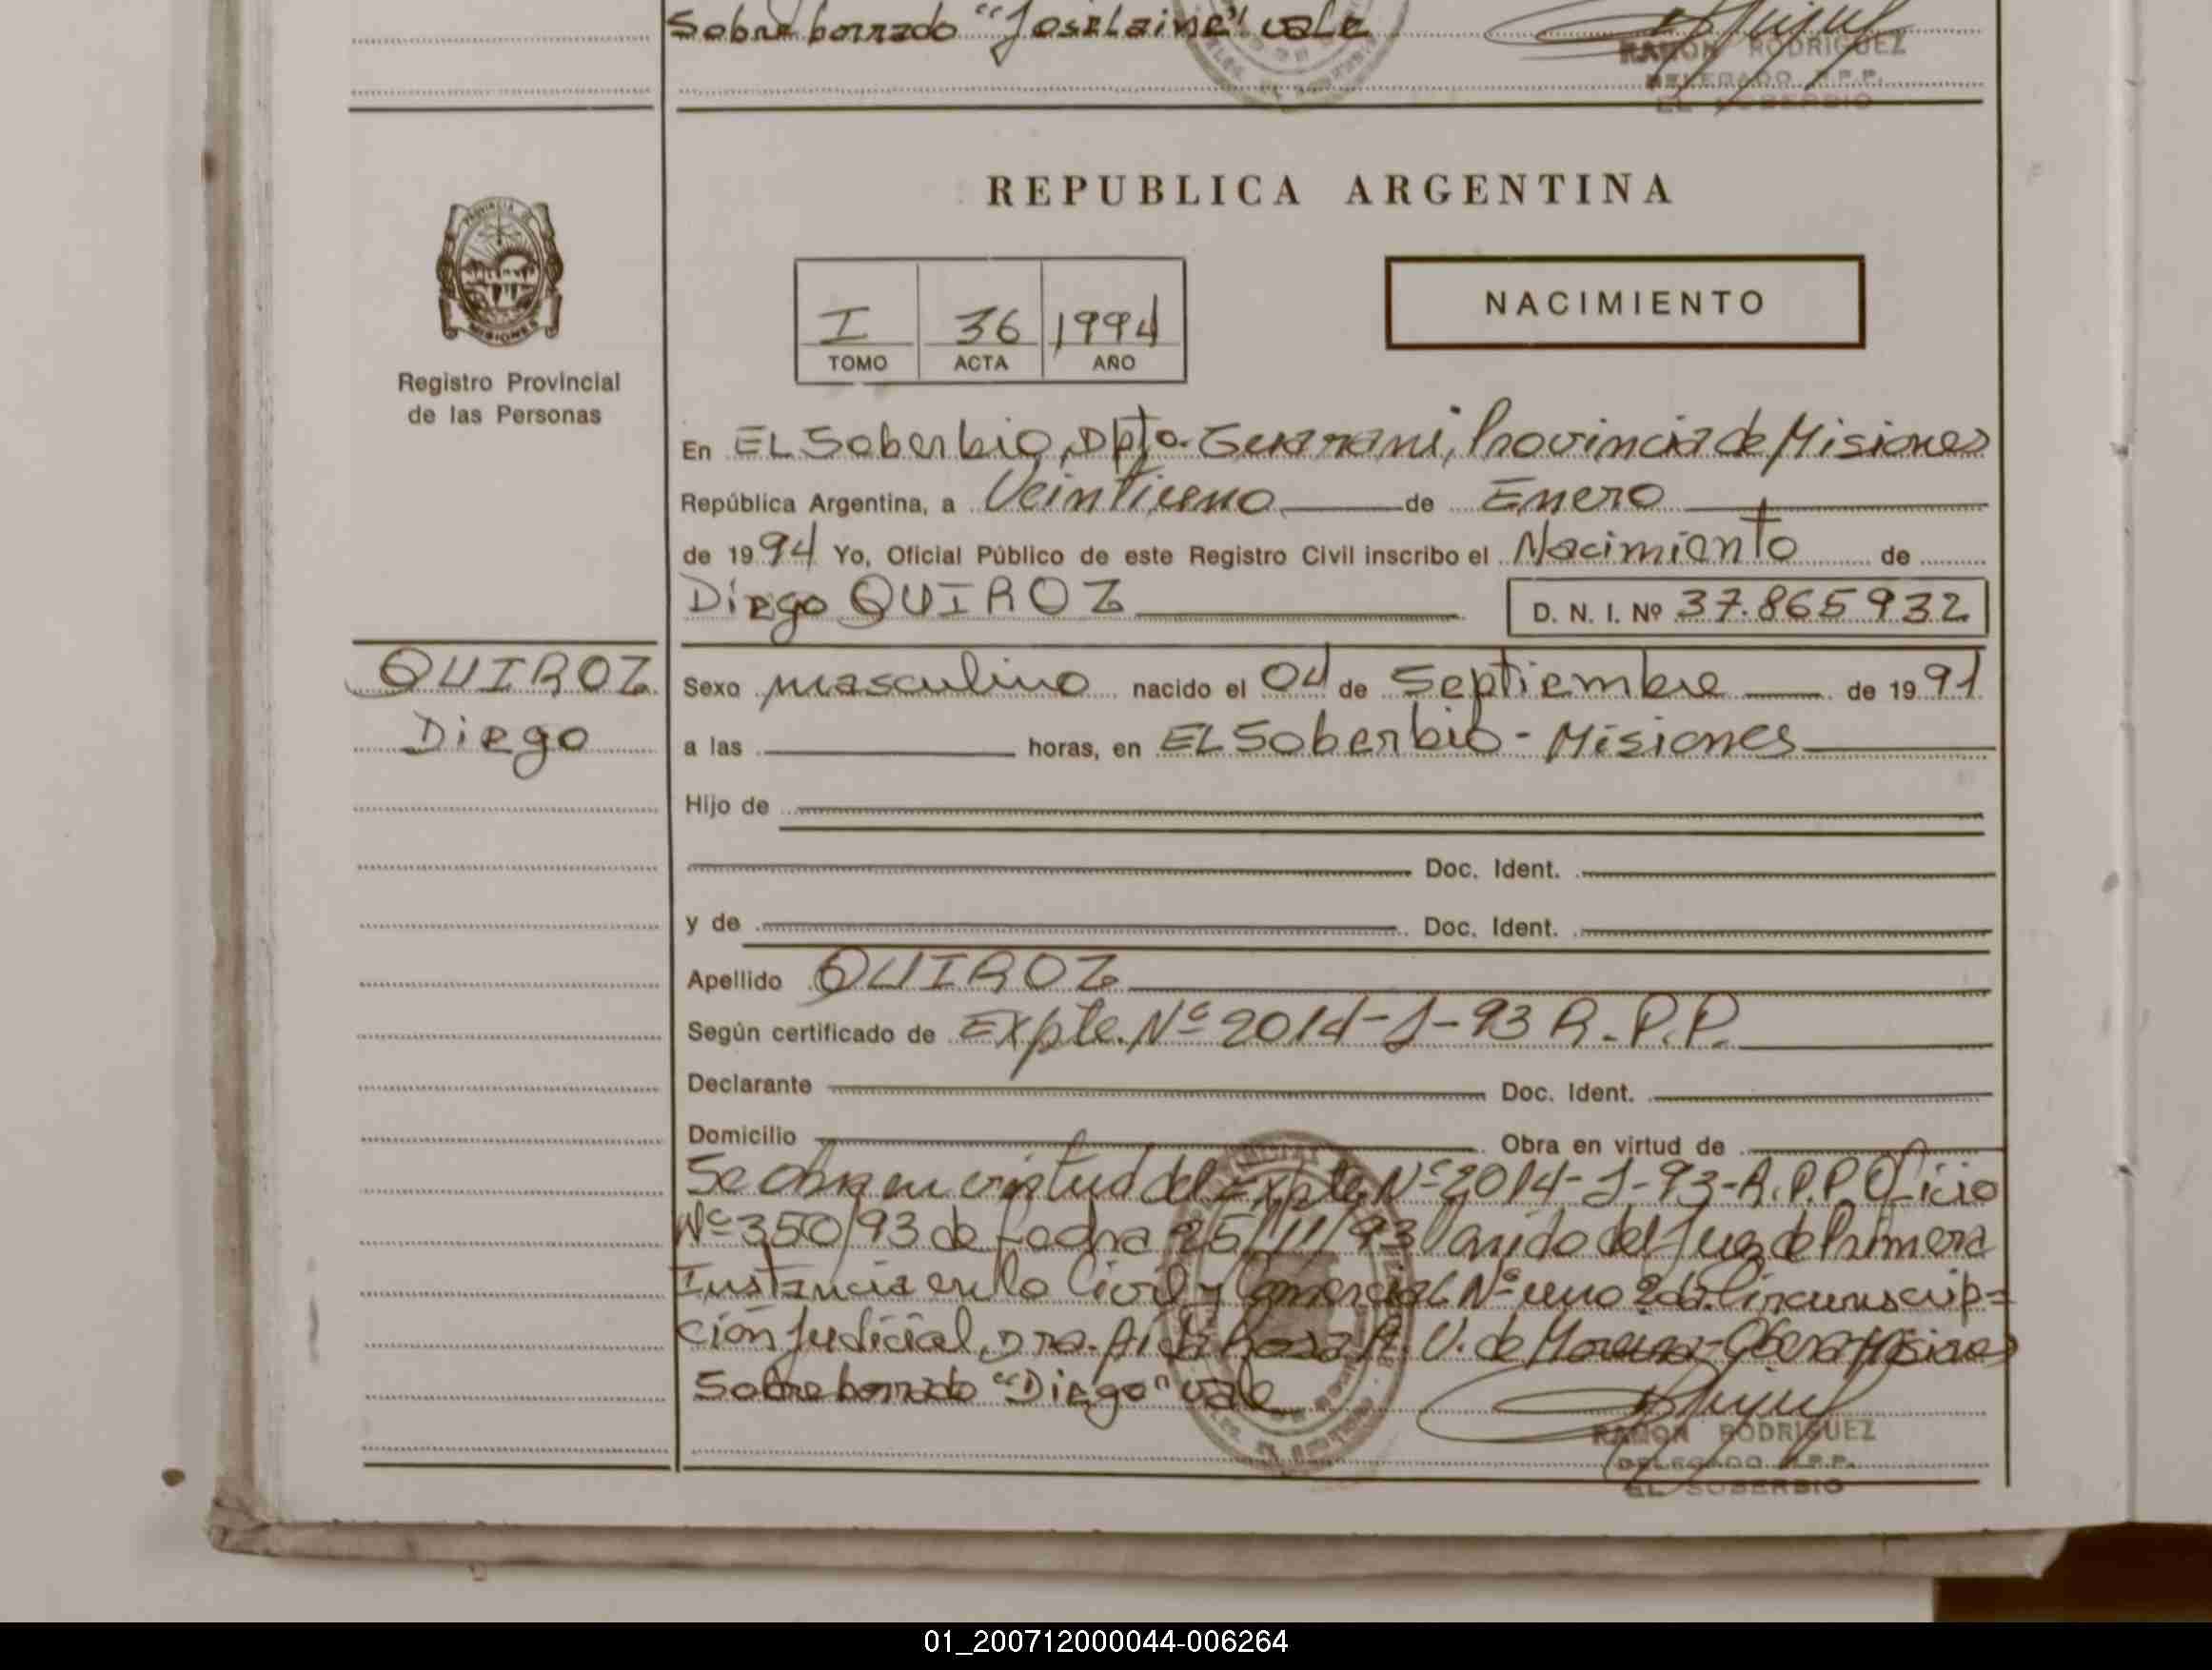 Sobre borrado "Joselaine" vale
RAMON RODRIGUEZ
DELEGADO R.P.P.
EL SOBERBIO
PROVINCIA DE
MISIONES
Registro Provincial
de las Personas
REPUBLICA ARGENTINA
I 36 1994
TOMO ACTA AÑO
NACIMIENTO
En EL Soberbio, Dpto. Guarani, Provincia de Misiones
República Argentina, a Veintiuno de Enero
de 1994 Yo, Oficial Público de este Registro Civil inscribo el Nacimiento de
Diego QUIROZ D. N. I. Nº 37.865932
QUIROZ
Diego
Sexo masculino nacido el 04 de Septiembre de 1991
a las horas, en EL Soberbio - Misiones
Hijo de
Doc. Ident.
y de Doc. Ident.
Apellido QUIROZ
Según certificado de Expte. Nº 2014-J-93 R.P.P.
Declarante Doc. Ident.
Domicilio Obra en virtud de
Se obra en virtud del Expte Nº 2014-J-93-R.P.P. Oficio
Nº 350/93 de fecha 25/11/93 del Juez de Primera
Instancia en lo Civil y Comercial Nº uno 2da. Circunscrip-
ción Judicial, Dra. Rosa A. V. de - Obera Misiones
Sobre borrado "Diego" vale
RAMON RODRIGUEZ
DELEGADO R.P.P.
EL SOBERBIO
01_200712000044-006264